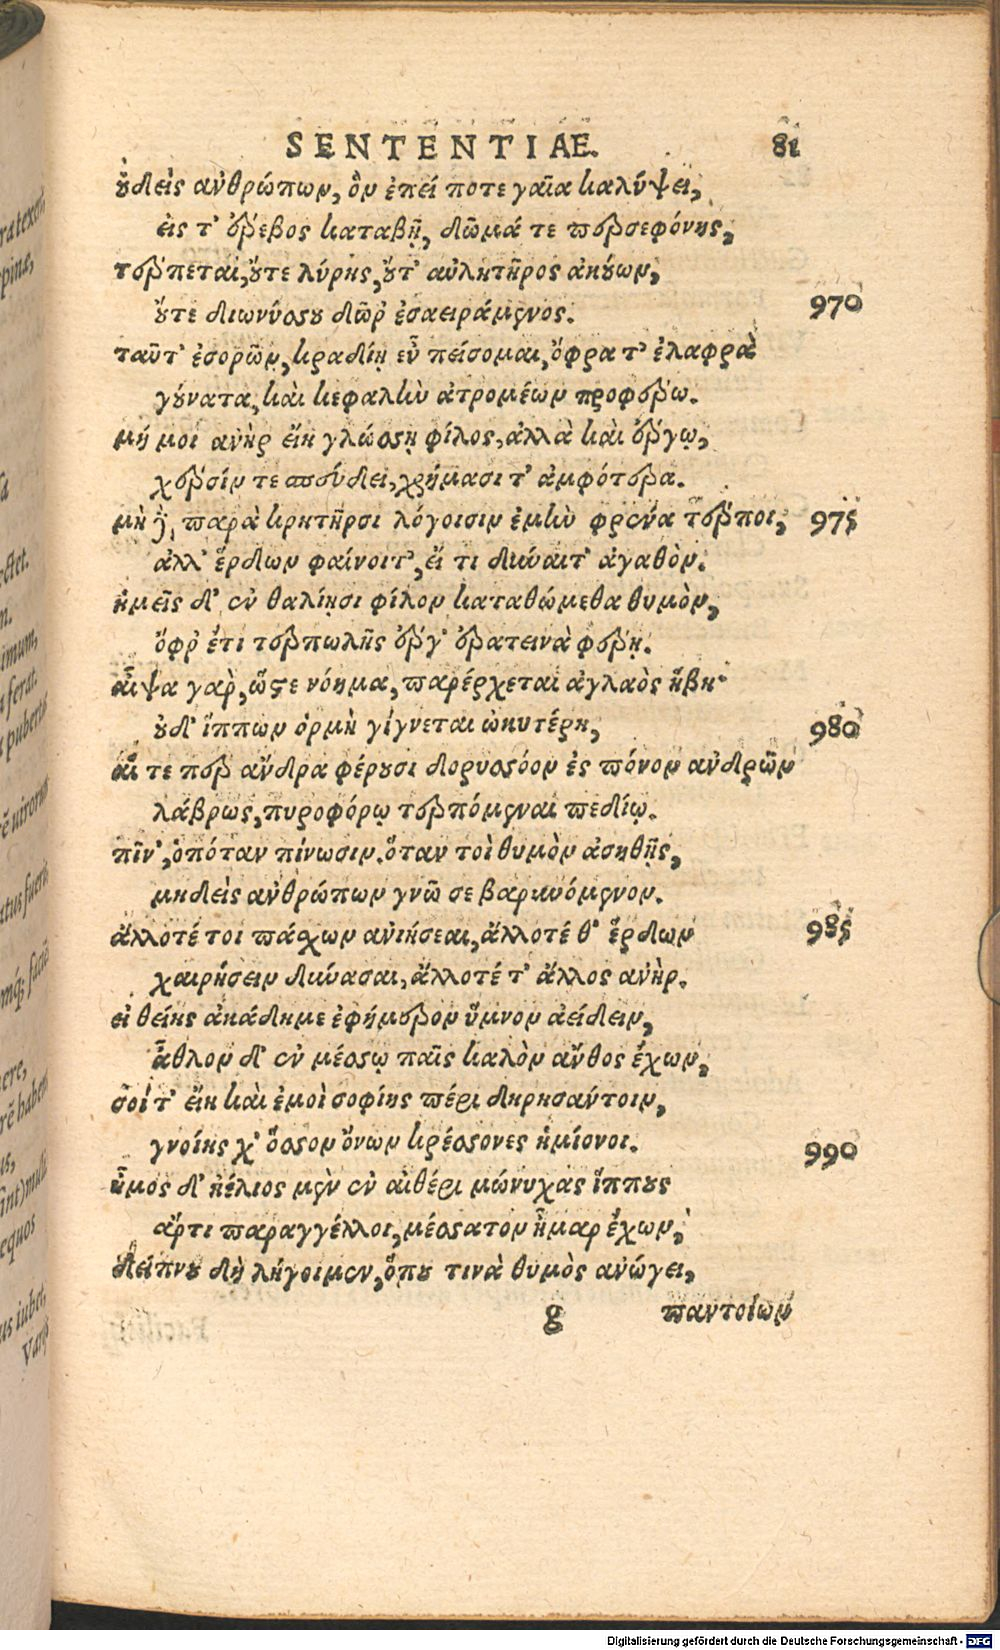 SENTENTIAE. 81
οὐδεὶς ἀνθρώπων, ὃν ἐπεί ποτε γαῖα καλύψει,
εἰς τ' ἔρεβος καταβῇ, δῶμά τε περσεφόνης,
τέρπεται, οὔτε λύρης, οὔτ' αὐλητῆρος ἀκούων,
οὔτε διωνύσου δῶρ' ἐσαειράμενος. 970
ταῦτ' ἐσορῶν, κραδίῃ εὖ πείσομαι, ὄφρα τ' ἐλαφρὰ
γούνατα, καὶ κεφαλὴν ἀτρομέων προφέρω.
μή μοι ἀνὴρ εἴη γλώσσῃ φίλος, ἀλλὰ καὶ ἔργῳ,
χερσίν τε σπεύδει, χρήμασι τ' ἀμφότερα.
μὴ δὲ παρὰ κρητῆρσι λόγοισιν ἐμὴν φρένα τέρποι, 975
ἀλλ' ἕρδων φαίνοιτ', εἴ τι δύναιτ' ἀγαθὸν.
ἡμεῖς δ' ἐν θαλίῃσι φίλον καταθώμεθα θυμὸν,
ὄφρ' ἔτι τερπωλῆς ἔργ' ἐρατεινὰ φέρῃ.
αἶψα γὰρ, ὥστε νόημα, παρέρχεται ἀγλαὸς ἥβη·
οὐδ' ἵππων ὁρμὴ γίγνεται ὠκυτέρη, 980
αἵ τε περ ἄνδρα φέρουσι δορυσσόον ἐς πόνον ἀνδρῶν
λάβρως, πυροφόρῳ τερπόμεναι πεδίῳ.
πῖν', ὁπόταν πίνωσιν. ὅταν τοὶ θυμὸν ἀσηθῇς,
μηδεὶς ἀνθρώπων γνῶ σε βαρυνόμενον.
ἄλλοτέ τοι πάσχων ἀνιήσεαι, ἄλλοτέ θ' ἕρδων 985
χαιρήσειν δύνασαι, ἄλλοτέ τ' ἄλλος ἀνὴρ.
εἰ θείης ἀκάδημε ἐφήμερον ὕμνον ἀείδειν,
ἆθλον δ' ἐν μέσσῳ παῖς καλὸν ἄνθος ἔχων,
σοί τ' εἴη καὶ ἐμοὶ σοφίης πέρι δηρησάντοιν,
γνοίης χ' ὅσσον ὄνων κρέσσονες ἡμίονοι. 990
ἦμος δ' ἠέλιος μὲν ἐν αἰθέρι μώνυχας ἵππους
ἄρτι παραγγέλλοι, μέσσατον ἦμαρ ἔχων,
δείπνου δὴ λήγοιμεν, ὅπου τινὰ θυμὸς ἀνώγει,
g παντοίων
Digitalisierung gefördert durch die Deutsche Forschungsgemeinschaft - DFG